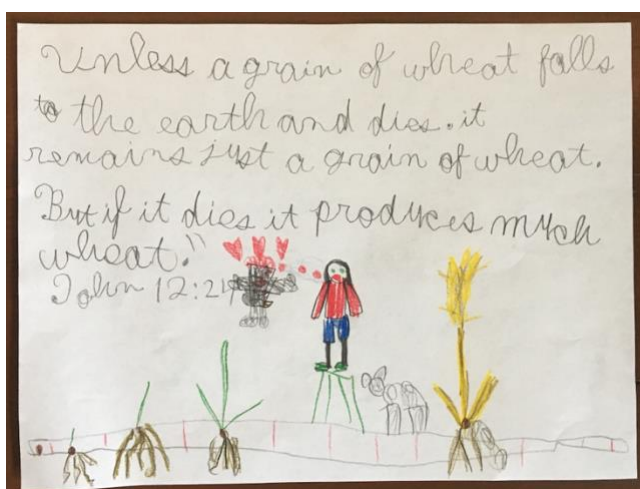 Unless a grain of wheat falls
to the earth and dies. it
remains just a grain of wheat.
But if it dies it produces much
wheat."
John 12:24